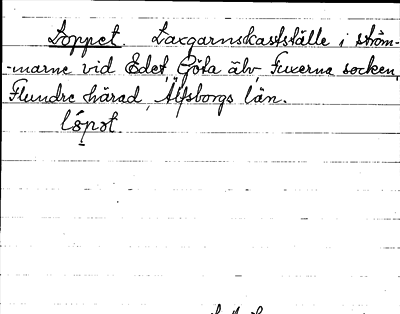 Loppet Laxgarnskastställe i ström-
-marne vid Edet, Göta älv, Fuxerna socken,
Flundre härad, Älfsborgs län.
lópət.